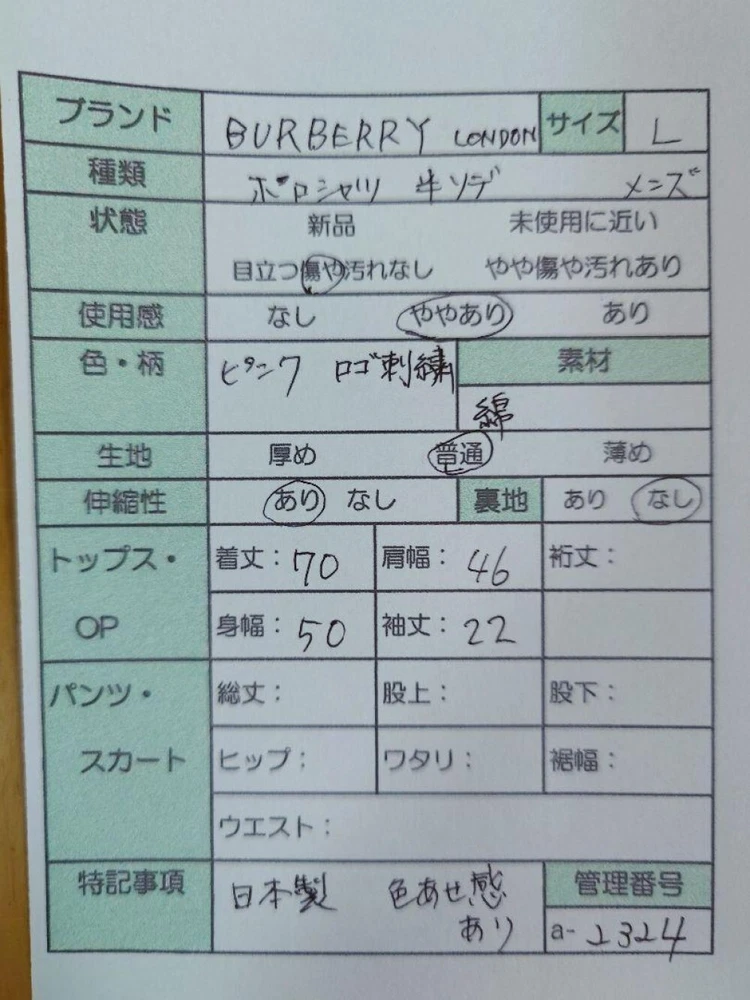 ブランド BURBERRY LONDON サイズ L
種類 ポロシャツ 半ソデ メンズ
状態 新品 未使用に近い
目立つ傷や汚れなし やや傷や汚れあり
使用感 なし ややあり あり
色・柄 ピンク ロゴ刺繍 素材
綿
生地 厚め 普通 薄め
伸縮性 あり なし 裏地 あり なし
トップス・ 着丈：70 肩幅：46 裄丈：
OP 身幅：50 袖丈：22
パンツ・ 総丈： 股上： 股下：
スカート ヒップ： ワタリ： 裾幅：
ウエスト：
特記事項 日本製 色あせ感 管理番号
あり a-2324